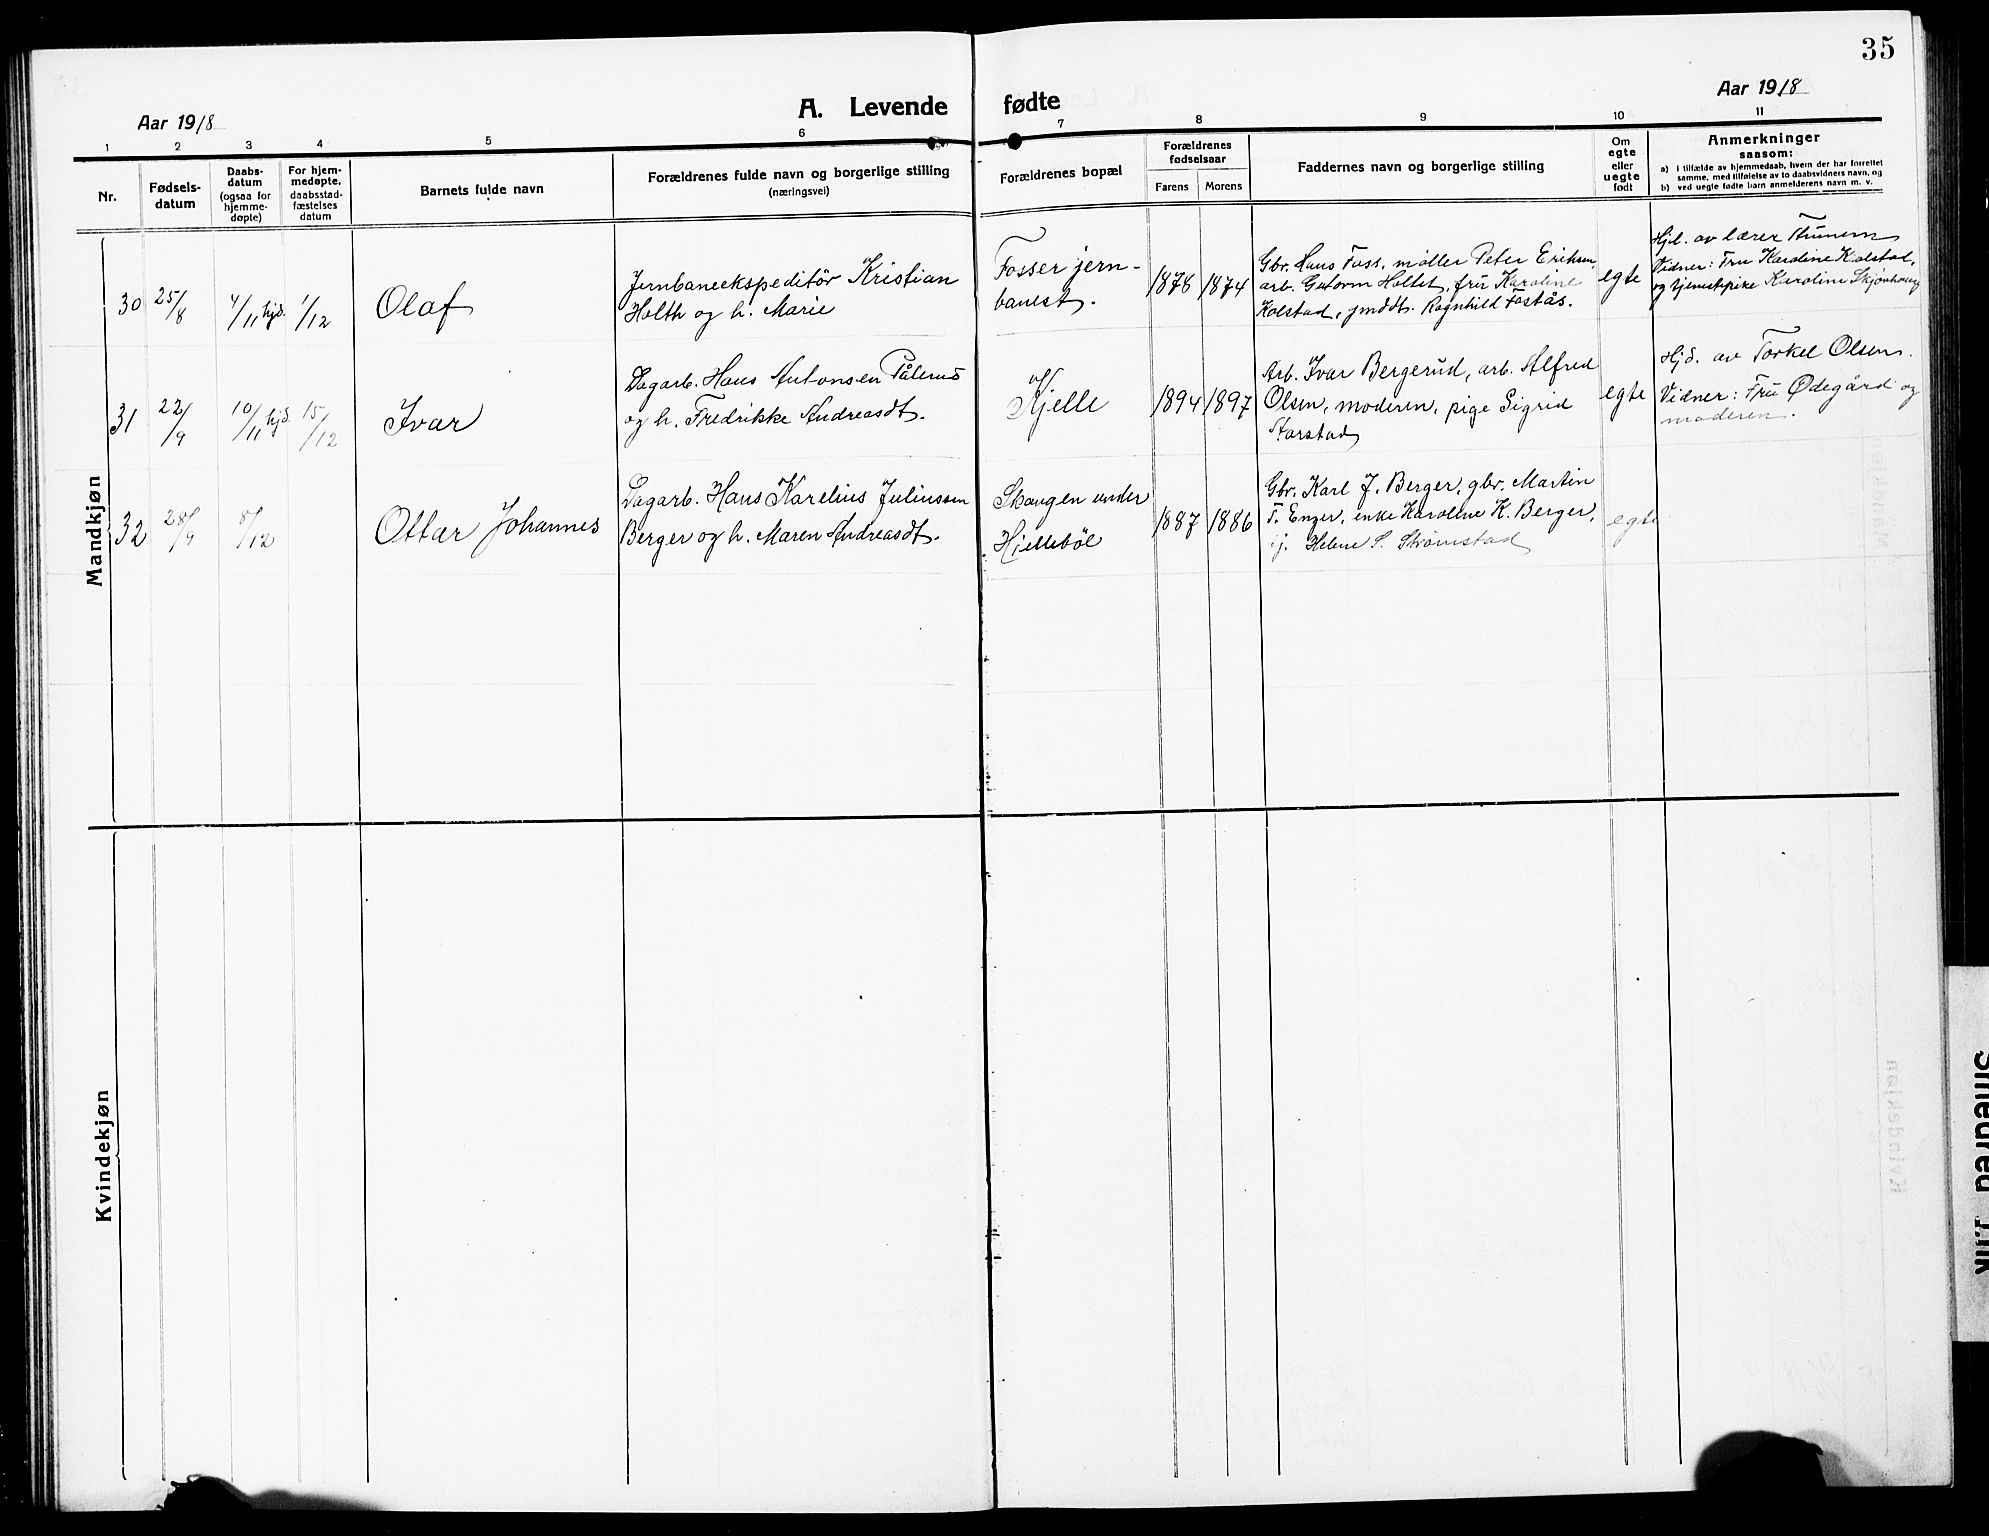 35
Aar 1918
A. Levende fødte
Aar 1918
1 2 3 4 5 6 7 8 9 10 11
Nr.
Fødsels-
datum
Daabs-
datum
(ogsaa for
hjemme-
døpte)
For hjem-
medøpte,
daabsstad-
fæstelses
datum
Barnets fulde navn
Forældrenes fulde navn og borgerlige stilling
(næringsvei)
Forældrenes bopæl
Forældrenes
fødselsaar
Farens Morens
Faddernes navn og borgerlige stilling
Om
egte
eller
uegte
født
Anmerkninger
saasom:
a) i tilfælde av hjemmedaab, hvem der har forrettet
samme, med tilføielse av to daabsvidners navn, og
b) ved uegte fødte barn anmelderens navn m. v.
Mandkjøn
30 25/8 4/11 hjd. 1/12
Olaf
Jernbaneekspeditör Kristian
Holth og h. Marie
Fosser jern-
banest.
1878 1874
Gbr. Hans Foss, möller Peter Eriksen,
arb. Guttorm Holtet, frü Karoline
Kolstad, ymddt. Ragnhild Fostås.
egte
Hjd. av lærer
Vidner: Fru Karoline Kolstad,
og tjenestepike Karoline Skjønhaug
31 22/9 10/11 hjd. 15/12
Ivar
Dagarb. Hans Antonsen Pålerud
og h. Fredrikke Andreasdt.
Kjelle
1894 1897
Arb. Ivar Bergerud, arb. Alfred
Olsen, moderen, pige Sigrid
Harstad
egte
Hjd. av Torkel Olsen.
Vidner: Fru Ødegård og
moderen.
32 28/9 8/12
Ottar Johannes
Dagarb. Hans Karelius Juliussen
Berger og h. Maren Andreasdt.
Skaugen under
Hjellebøl
1887 1886
Gbr. Karl J. Berger, gbr. Martin
T. Enger, enke Karoline K. Berger,
Helene S. Strømstad
egte
Kvindekjøn